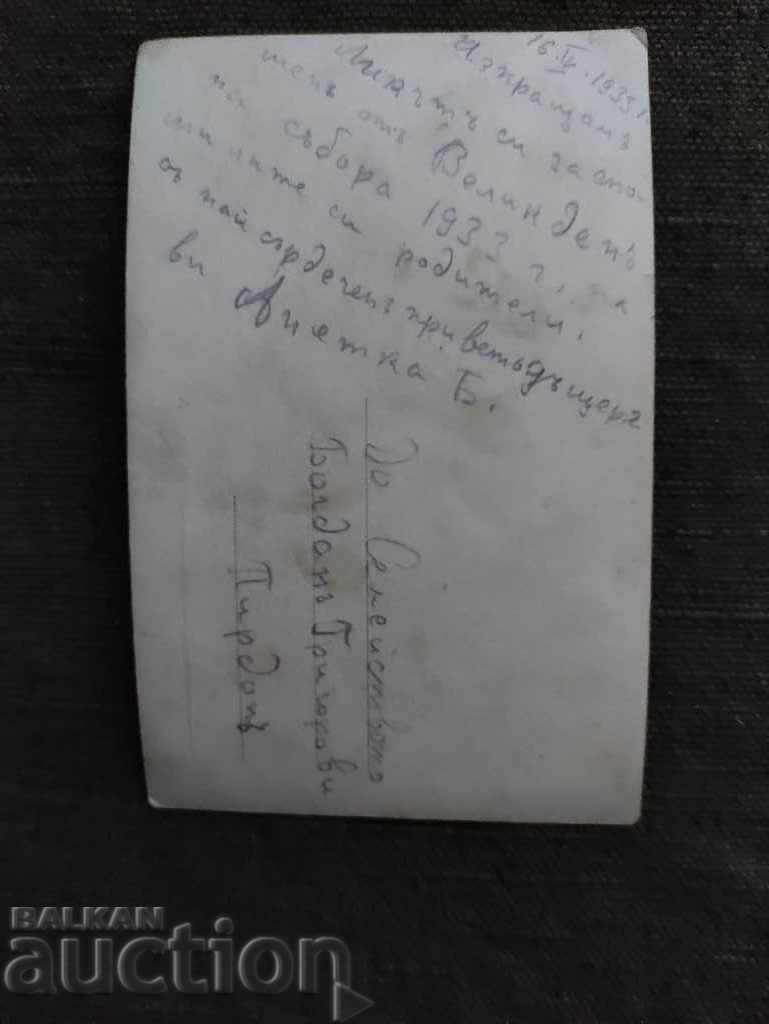 16.IV.1933 г.
Изпращамъ
Ликътъ си за спо-
менъ отъ Великденъ-
на събора 1933 г. на
милите си родители.
съ най сърдеченъ приветъ дъщеря
ви Б.
До Семейството
Богданъ Григорови
Пирдопъ
BALKAN
auction